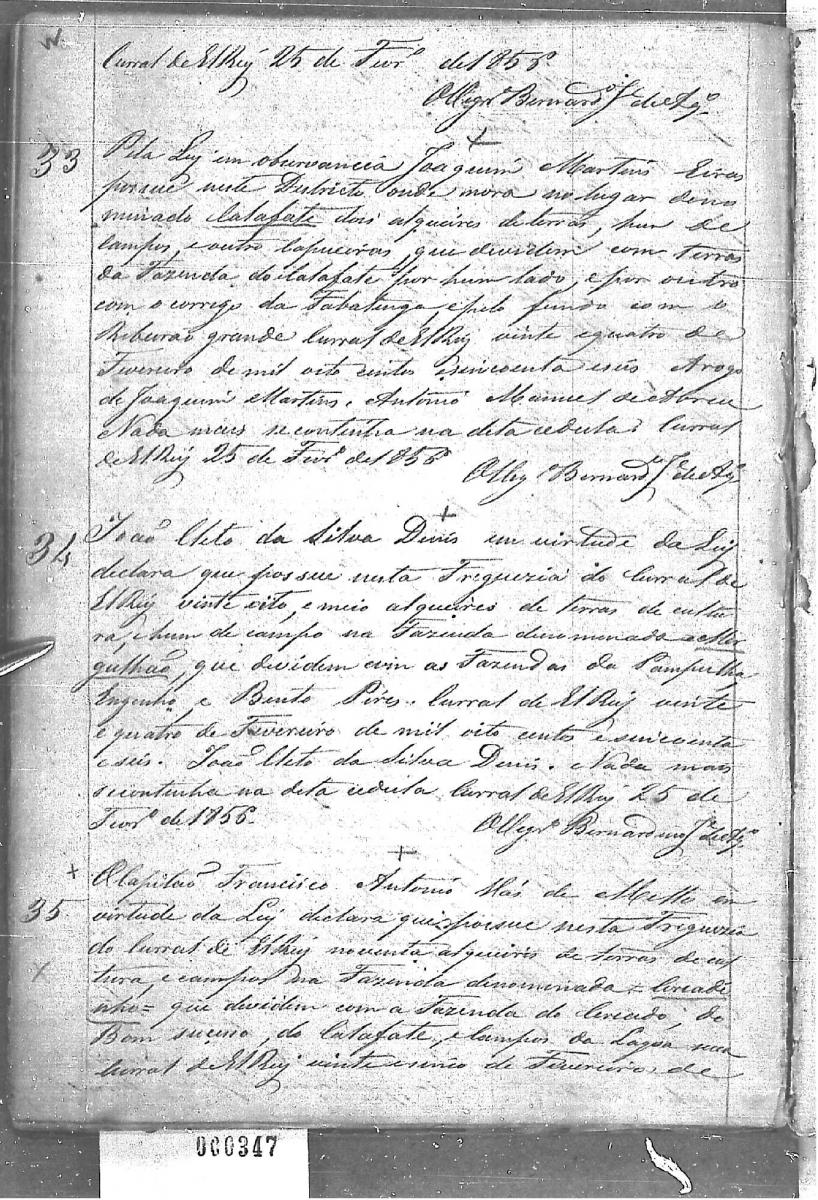 Curral de ElRey 25 de Fevr.o de 1856
O Vigr.o Bernardo Je. de Aq.o
33
Pela Ley em observancia Joaquim Martins
possue neste Districto onde mora no lugar deno
minado Calafate dois alqueires de terras, hum de
Campos, e outro Capueiras, que dividem com terras
da Fazenda do Calafate por hum lado, e por outro
com o corrego da Tabatinga, e pelo fundo com o
Ribeirão grande Curral de ElRey vinte e quatro de
Fevereiro de mil oito centos e sincoenta e seis Arogo
de Joaquim Martins. Antonio Manuel de Abreu
Nada mais se continha na dita cedula. Curral
de ElRey 25 de Fevr.o de 1856
O Vigr.o Bernardo Je. de Aq.o
34
João Neto da Silva Deniz em virtude da Ley
declara que possue nesta Freguezia do Curral de
ElRey vinte oito, e meio alqueires de terras de cultu
ra, e hum de campo na Fazenda denominada = Mer
gulhão, que dividem com as Fazendas da Pampulha
Engenho, e Bento Pires. Curral de ElRey vinte
e quatro de Fevereiro de mil oito centos e sincoenta
e seis. João Neto da Silva Deniz. Nada mais
se continha na dita cedula Curral de ElRey 25 de
Fevr.o de 1856.
O Vigr.o Bernardino Je. de Aq.o
35
O Capitão Francisco Antonio de Mello em
virtude da Ley declara que possue nesta Freguezia
do Curral de ElRey noventa alqueiris de terras de cul
tura, e campos na Fazenda denominada = Cercadi
nho = que dividem com a Fazenda do Cercado, do
Bom suceso, do Calafate, e Campos da Lagoa seca
Curral de ElRey vinte e sinco de Fevereiro de
000347